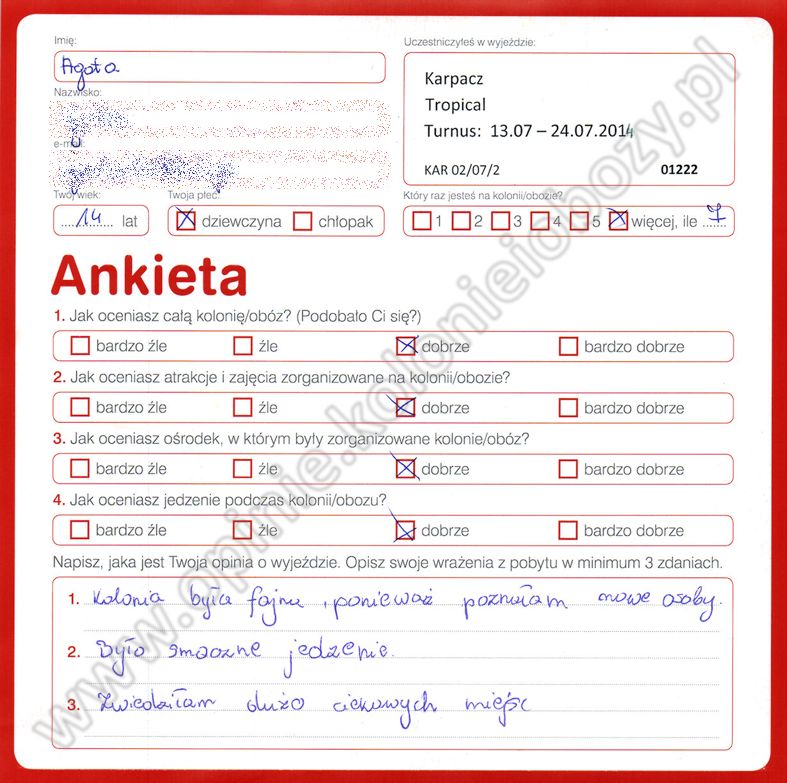 Imię:
Uczestniczyłeś w wyjeździe:
Agata
Karpacz
Tropical
Turnus: 13.07 – 24.07.2014
KAR 02/07/2 01222
Nazwisko:
e-mail:
Twój wiek:
Twoja płeć:
Który raz jesteś na kolonii/obozie?
14 lat
dziewczyna chłopak
1 2 3 4 5 więcej, ile 7
Ankieta
1. Jak oceniasz całą kolonię/obóz? (Podobało Ci się?)
bardzo źle źle dobrze bardzo dobrze
2. Jak oceniasz atrakcje i zajęcia zorganizowane na kolonii/obozie?
bardzo źle źle dobrze bardzo dobrze
3. Jak oceniasz ośrodek, w którym były zorganizowane kolonie/obóz?
bardzo źle źle dobrze bardzo dobrze
4. Jak oceniasz jedzenie podczas kolonii/obozu?
bardzo źle źle dobrze bardzo dobrze
Napisz, jaka jest Twoja opinia o wyjeździe. Opisz swoje wrażenia z pobytu w minimum 3 zdaniach.
1. Kolonia była fajna, ponieważ poznałam nowe osoby.
2. Było smaczne jedzenie.
3. Zwiedziłam dużo ciekawych miejsc
www.opinie.kolonieiobozy.pl